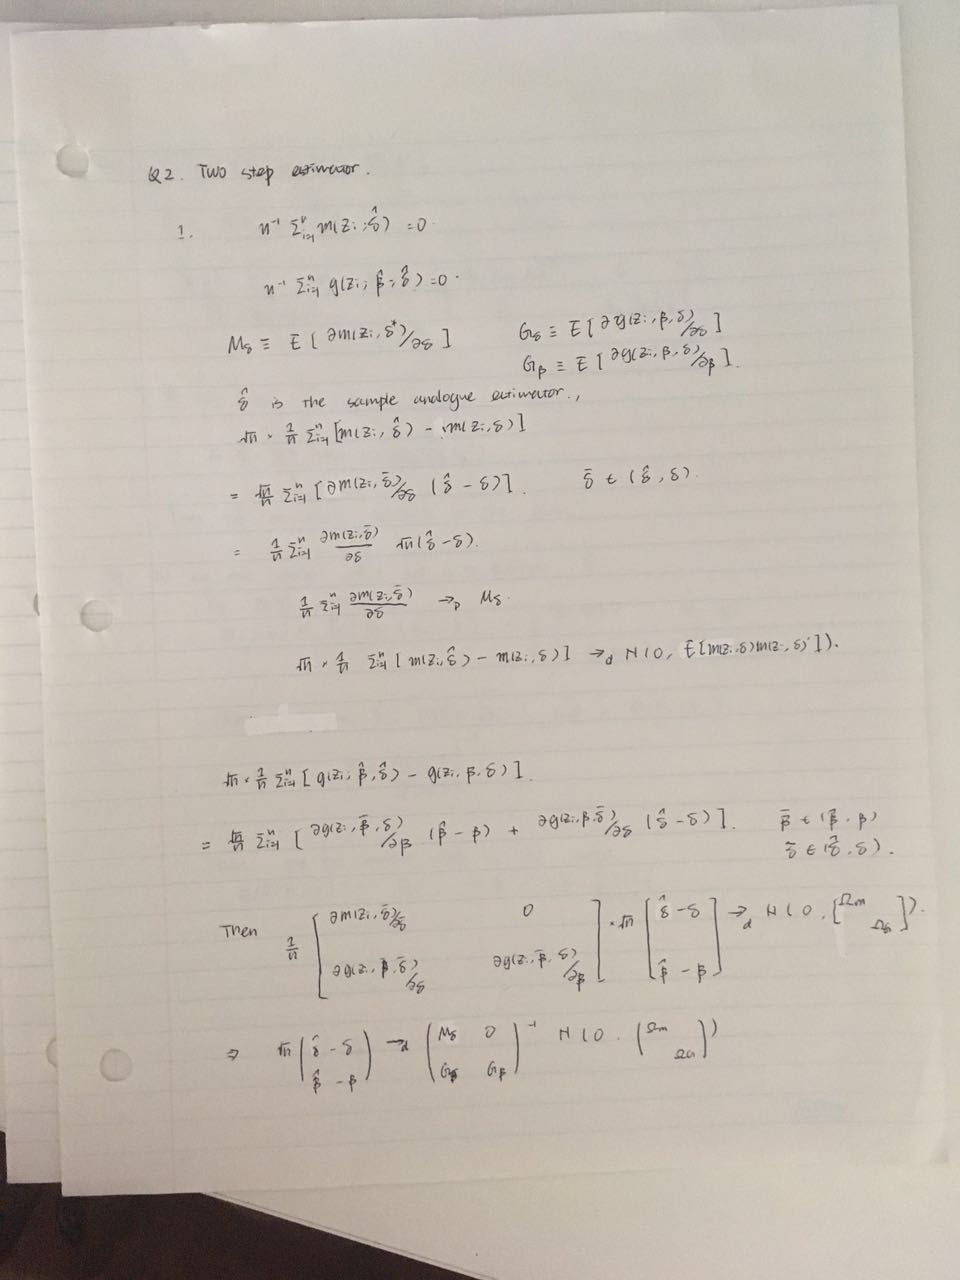 Q2. Two step estimator.
1. n⁻¹ Σᵢ₌₁ⁿ m(zᵢ; δ̂) = 0.
n⁻¹ Σᵢ₌₁ⁿ g(zᵢ; β̂; δ̂) = 0.
M_δ ≡ E[∂m(zᵢ, δ*)/∂δ] G_δ ≡ E[∂g(zᵢ, β, δ)/∂δ]
G_β ≡ E[∂g(zᵢ, β, δ)/∂β].
δ̂ is the sample analogue estimator.,
√n × 1/n Σᵢ₌₁ⁿ [m(zᵢ, δ̂) - m(zᵢ, δ)]
= √n/n Σᵢ₌₁ⁿ [∂m(zᵢ, δ̄)/∂δ (δ̂ - δ)]. δ̄ ∈ (δ̂, δ).
= 1/n Σᵢ₌₁ⁿ ∂m(zᵢ, δ̄)/∂δ √n(δ̂ - δ).
1/n Σᵢ₌₁ⁿ ∂m(zᵢ, δ̄)/∂δ →p M_δ.
√n × 1/n Σᵢ₌₁ⁿ [m(zᵢ, δ̂) - m(zᵢ, δ)] →d N(0, E[m(zᵢ, δ)m(zᵢ, δ)']).
√n × 1/n Σᵢ₌₁ⁿ [g(zᵢ, β̂, δ̂) - g(zᵢ, β, δ)].
= √n/n Σᵢ₌₁ⁿ [∂g(zᵢ, β̄, δ)/∂β (β̂ - β) + ∂g(zᵢ, β, δ̄)/∂δ (δ̂ - δ)]. β̄ ∈ (β̂, β)
δ̄ ∈ (δ̂, δ).
Then 1/n [∂m(zᵢ, δ̄)/∂δ 0 ; ∂g(zᵢ, β, δ̄)/∂δ ∂g(zᵢ, β̄, δ)/∂β] × √n [δ̂ - δ ; β̂ - β] →d N(0, [Ω_m ; Ω_δ]).
⇒ √n (δ̂ - δ ; β̂ - β) →d (M_δ 0 ; G_δ G_β)⁻¹ N(0, (Ω_m ; Ω_G))